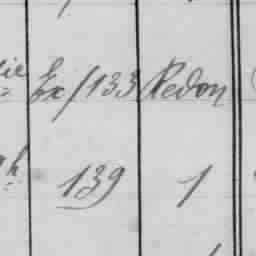 Ex/133 Redon
139 1